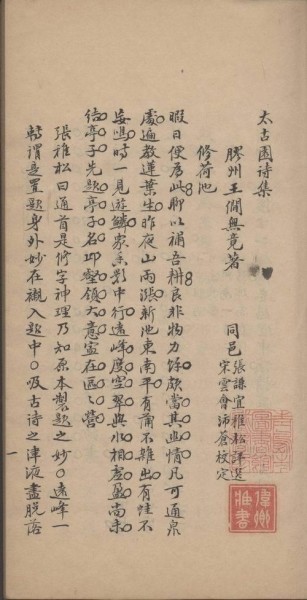 太古園詩集
膠州王僩無竟著
同邑張謙宜稚松評選
宋雲會沛蒼校定
修荷池
暇日便為此聊以補吾耕良非物力餘頗當其幽情凡可通泉
處遍教蓮葉生昨夜山雨漲新池東南平有荷不雜出有蛙不
妄鳴時一見遊鱗家影中行遠峰度空翠與水相虛盈尚未
結亭子先題亭子名印壑領大意寧在區區營
張稚松曰通首是修字神理乃知原本製題之妙遠峰一
轉謂是置題身外妙在襯入題中吸古詩之津液盡脫落